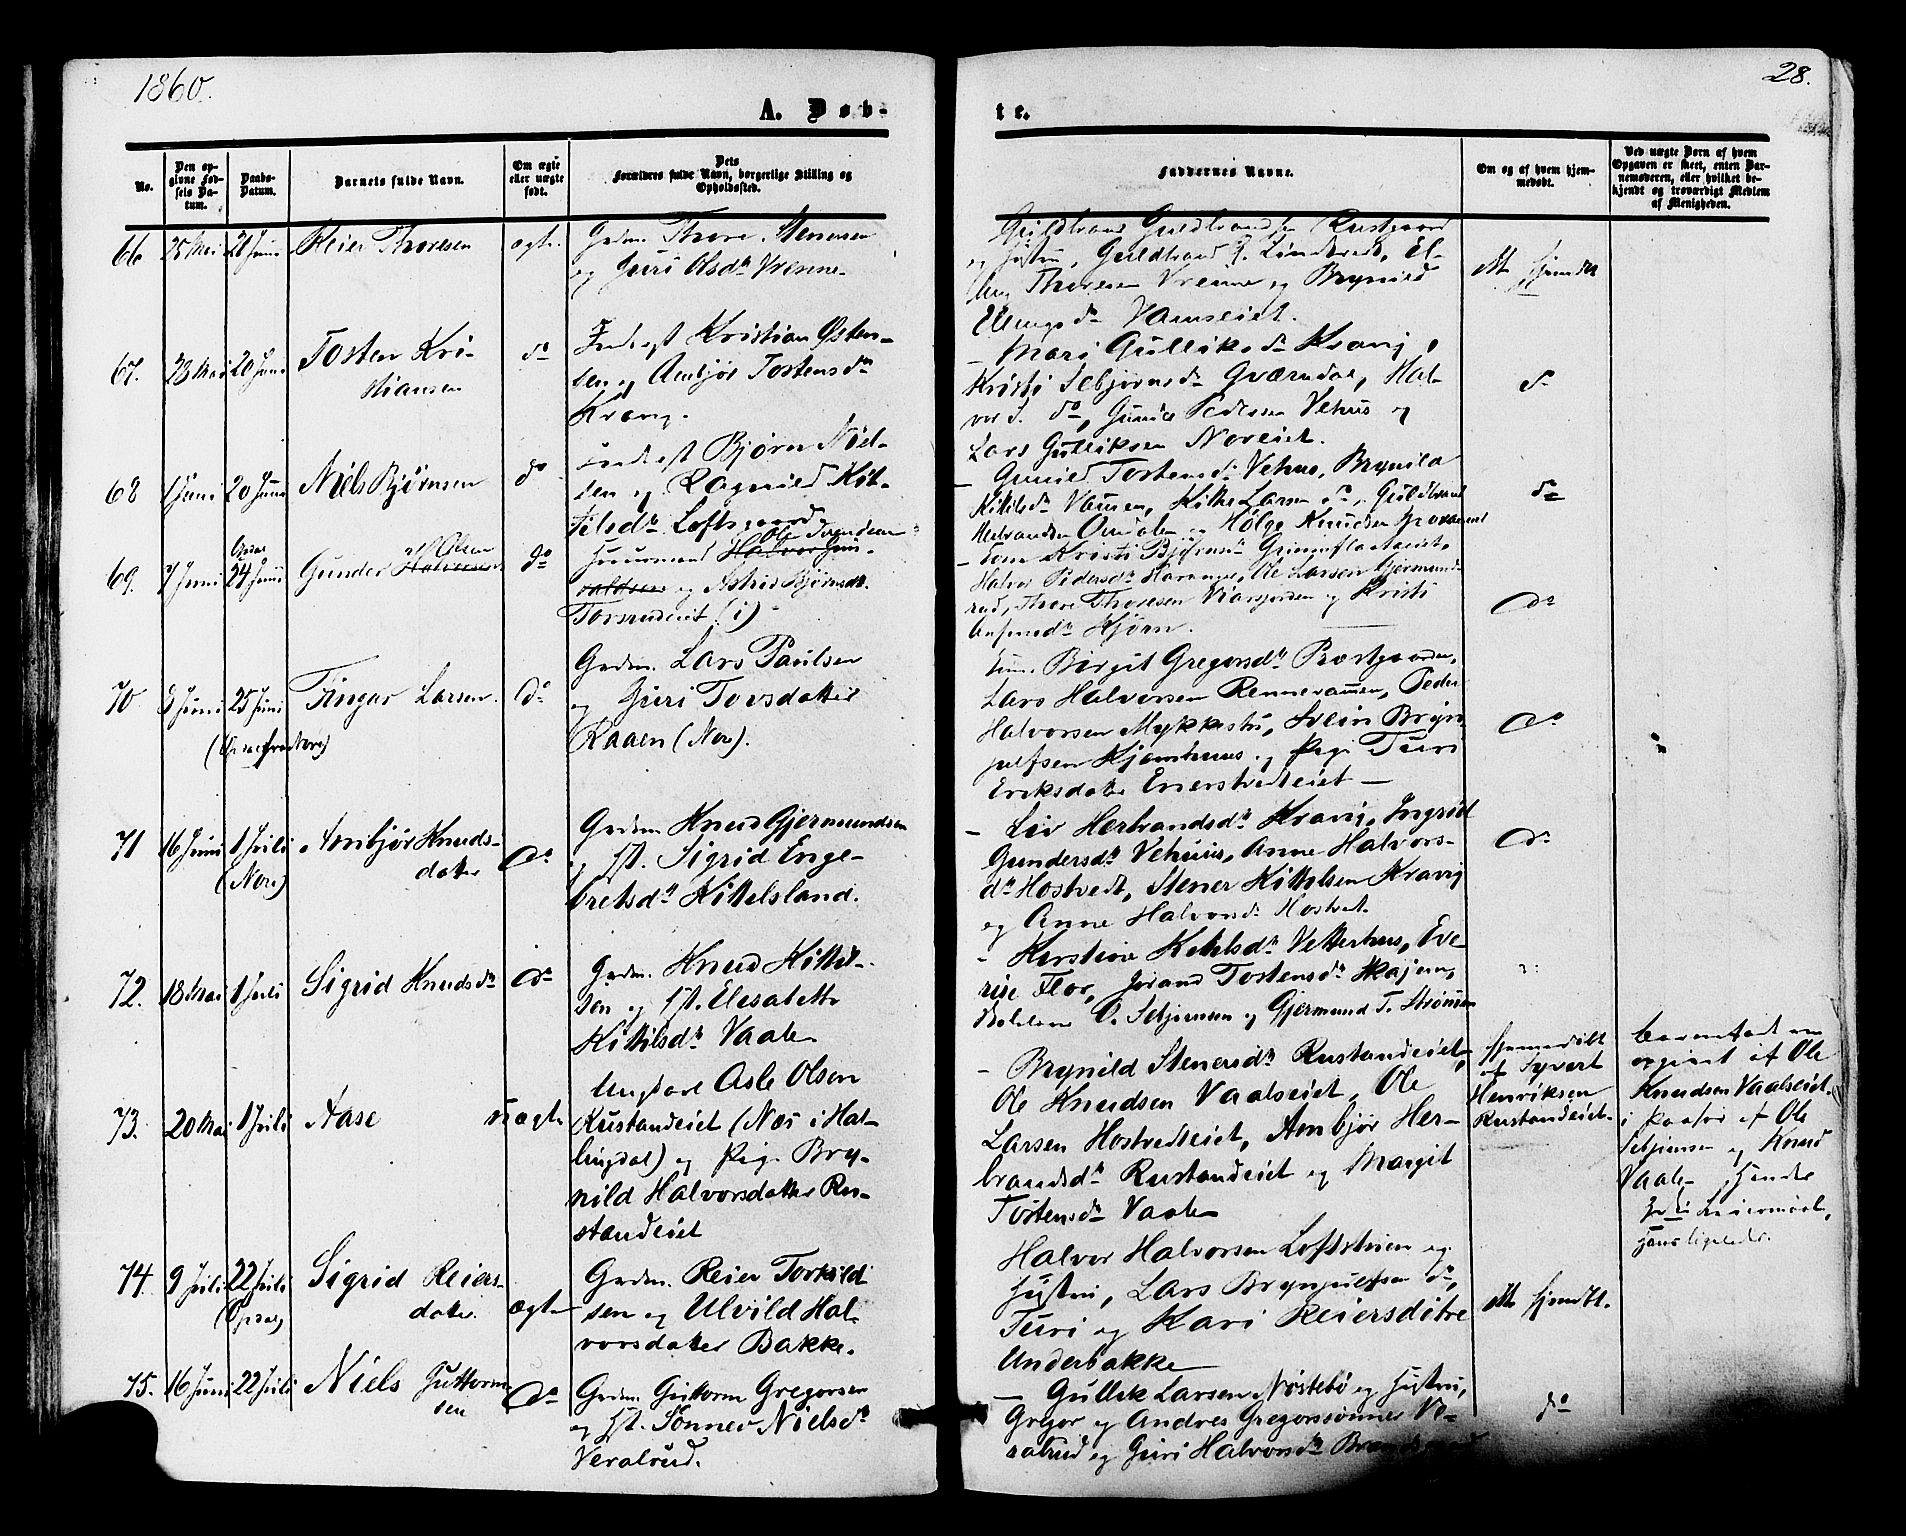 1860.
28.
A. Døb-
te.
No.
Den op-
givne Fød-
sels Da-
tum.
Daabs-
Datum.
Barnets fulde Navn.
Om ægte
eller uægte
født.
Dets
Forældres fulde Navn, borgerlige Stilling og
Opholdssted.
Faddernes Navne.
Om og af hvem hjem-
medøbt.
Ved uægte Børn af hvem
Opgaven er skeet, enten Bar-
nemoderen, eller hvilket be-
kjendt og troværdigt Medlem
af Menigheden.
66 25 Mai Juni Reier Thoresen ægte
Grdm. Thore Stenersen
og Guri Olsdr Vrenne
Guldbrand Guldbrandsen Rustgaard
og Hustru, Guldbrand
Thoresen Vrenne og Brynild
Ellingsdr
67. 23 Mai 20 Juni Tosten Kri-
stiansen do
Inderst Kristian Østen-
sen og Ambjør Tostensdr
Kravig.
- Mari Gulliksdr Kravig,
Kristi Sebjørnsdr Gværndal, Hal-
vor S. do, Gunder Pedersen Vehus og
Lars Gulliksen Noreiet.
do
68 1 Juni 20 Juni Niels Bjørnsen do
Inderst Bjørn Niel-
sen og Ragnild Kit-
tilsdr Loftsgaard
- Gunild Tostensdr Vehus, Brynild
Kittilsdr Larsen do, Guldbrand
Herbrandsen og Helge Knudsen
do
69. 7 Juni Opdal
24 Juni Gunder Olsen
Halvorsen do
Huusmand Halvor Gun- Ole
valdsen og Astrid Bjørnsdr
Torsrudeiet (i)
- Kristi Bjørnsdr
Halvor Ole Larsen Gjermund-
rud, Thore Thoresen og Kristi
do
70 8 Juni 25 Juni Fingar Larsen. do
Grdm. Lars Paulsen
og Guri Torsdatter
Raaen (Nore).
Birgit Gregorsdr Præstgaarden,
Lars Halvorsen Peder
Halvorsen Mykkestu, Svein Bryn-
julfsen Kjomhuus og Pige Turi
Eriksdatter Enerstvedteiet -
do
71 16 Juni 1 Juli
(Nore) Ambjør Knuds-
datter do
Grdm Knud Gjermundsen
og H. Sigrid Enge-
bretsdr Kittelsland.
- Liv Herbrandsdr Kravig, Ingrid
Gundersdr Vehuus, Anne Halvors-
dr Hostvedt, Stener Kittelsen Kravig
og Anne Halvorsdr Hostvet.
do
72. 18 Mai 1 Juli Sigrid Knudsdr do
Grdm. Knud Kittel-
sen og H. Elisabeth
Kittilsdr Vaale
- Kerstine Kittilsdr Vetterhus, Eve-
rise Flor, Jorand Tostensdr
O. Sebjørnsen og Gjermund T. Strømmen
73. 20 Mai 1 Juli Aase uægte
Ungkarl Asle Olsen
Rustandeiet (Næs i Hal-
lingdal) og Pige Bry-
nild Halvorsdatter Ru-
standeiet
- Brynild Stenersdr Rustandeiet,
Ole Knudsen Vaalseiet, Ole
Larsen Hostvedteiet, Ambjør Her-
brandsdr Rustandeiet og Margit
Tostensdr Vaale
Hjemmedøbt
af Syvert
Henriksen
Rustandeiet.
Barnefader
opgivet af Ole
Knudsen Vaalseiet
i Paahør af Ole
Sebjørnsen og Knud
Vaale. Hendes
Leiermaal,
hans ligeledes.
74. 9 Juli 22 Juli
(Opdal) Sigrid Reiers-
datter ægte
Grdm. Reier Torkild
sen og Ulvild Hal-
vorsdatter Bakke.
Halvor Halvorsen Loftstuen og
Hustru, Lars Brynjulfsen do,
Turi og Kari Reiersdøtre
Underbakke
ikke hjemdbt.
75. 16 Juni 22 Juli Niels Guttorm
sen do
Grdm. Guttorm Gregorsen
og H. Sønnev Nielsdr
Veralrud.
- Gullik Larsen Nøstebø og Hustru,
Gregor og Andres Gregorssønner Ve-
ralrud og Guri Halvorsdr
do